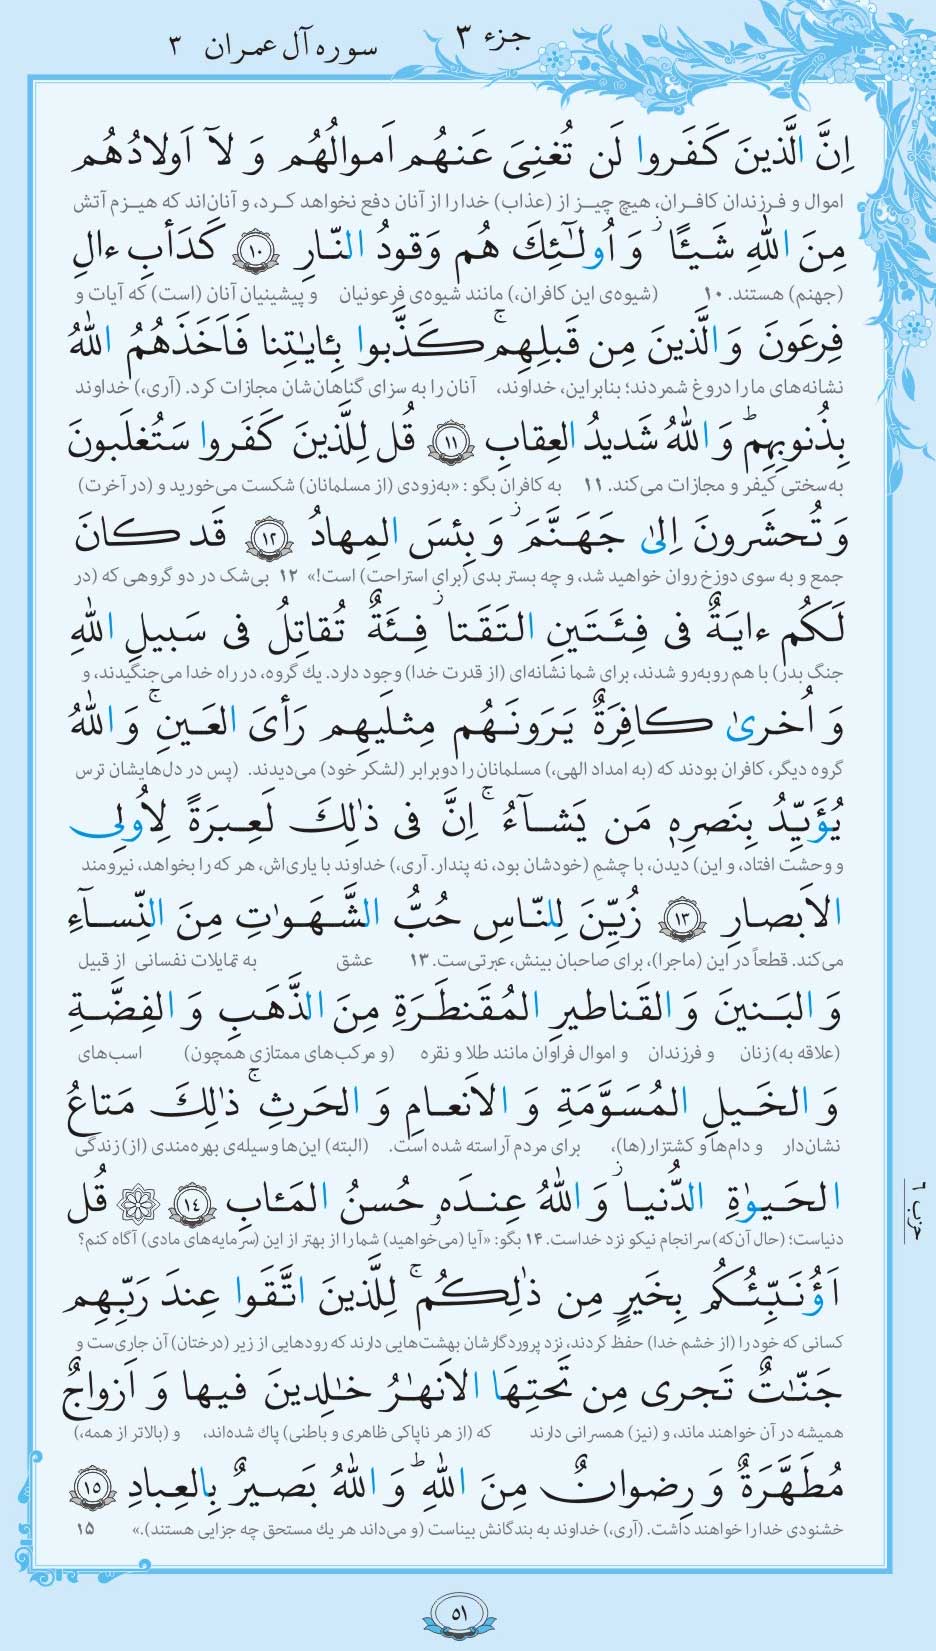 جزء ۳
سوره آل عمران ۳
اِنَّ الَّذینَ کَفَروا لَن تُغنِیَ عَنهُم اَموالُهُم وَ لآ اَولادُهُم
اموال و فرزندان کافران، هیچ چیز از (عذاب) خدا را از آنان دفع نخواهد کرد، و آنان‌اند که هیزم آتش
مِنَ اللهِ شَیـًٔا ز وَ اُولٰٓئِكَ هُم وَقودُ النّارِ ﴿۱۰﴾ کَدَأبِ ءالِ
(جهنم) هستند. ۱۰ (شیوه‌ی این کافران،) مانند شیوه‌ی فرعونیان و پیشینیان آنان (است) که آیات و
فِرعَونَ وَ الَّذینَ مِن قَبلِهِم ۚ کَذَّبوا بِـٔایٰتِنا فَاَخَذَهُمُ اللهُ
نشانه‌های ما را دروغ شمردند؛ بنابراین، خداوند، آنان را به سزای گناهان‌شان مجازات کرد. (آری،) خداوند
بِذُنوبِهِم ط وَ اللهُ شَدیدُ العِقابِ ﴿۱۱﴾ قُل لِلَّذینَ کَفَروا سَتُغلَبونَ
به‌سختی کیفر و مجازات می‌کند. ۱۱ به کافران بگو: «به‌زودی (از مسلمانان) شکست می‌خورید و (در آخرت)
وَ تُحشَرونَ اِلیٰ جَهَنَّمَ ز وَ بِئسَ المِهادُ ﴿۱۲﴾ قَد کانَ
جمع و به سوی دوزخ روان خواهید شد، و چه بستر بدی (برای استراحت) است!» ۱۲ بی‌شک در دو گروهی که (در
لَکُم ءایَةٌ فی فِئَتَینِ التَقَتا ز فِئَةٌ تُقاتِلُ فی سَبیلِ اللهِ
جنگ بدر) با هم روبه‌رو شدند، برای شما نشانه‌ای (از قدرت خدا) وجود دارد. یك گروه، در راه خدا می‌جنگیدند، و
وَ اُخریٰ کافِرَةٌ یَرَونَهُم مِثلَیهِم رَأیَ العَینِ ۚ وَ اللهُ
گروه دیگر، کافران بودند که (به امداد الهی،) مسلمانان را دوبرابر (لشکر خود) می‌دیدند. (پس در دل‌هایشان ترس
یُؤَیِّدُ بِنَصرِهٖ مَن یَشآءُ ۚ اِنَّ فی ذٰلِكَ لَعِبرَةً لِاُولِی
و وحشت افتاد، و این) دیدن، با چشم (خودشان بود، نه پندار. آری،) خداوند با یاری‌اش، هر که را بخواهد، نیرومند
الاَبصارِ ﴿۱۳﴾ زُیِّنَ لِلنّاسِ حُبُّ الشَّهَوٰتِ مِنَ النِّسآءِ
می‌کند. قطعاً در این (ماجرا)، برای صاحبان بینش، عبرتی‌ست. ۱۳ عشق به تمایلات نفسانی از قبیل
وَ البَنینَ وَ القَناطیرِ المُقَنطَرَةِ مِنَ الذَّهَبِ وَ الفِضَّةِ
(علاقه به) زنان و فرزندان و اموال فراوان مانند طلا و نقره (و مرکب‌های ممتازی همچون) اسب‌های
وَ الخَیلِ المُسَوَّمَةِ وَ الاَنعامِ وَ الحَرثِ ۚ ذٰلِكَ مَتاعُ
نشان‌دار و دام‌ها و کشتزار(ها)، برای مردم آراسته شده است. (البته) این‌ها وسیله‌ی بهره‌مندی (از) زندگی
الحَیوٰةِ الدُّنیا ز وَ اللهُ عِندَهٗ حُسنُ المَـٔابِ ﴿۱۴﴾ قُل
دنیاست؛ (حال آن‌که) سرانجام نیکو نزد خداست. ۱۴ بگو: «آیا (می‌خواهید) شما را از بهتر از این (سرمایه‌های مادی) آگاه کنم؟
حزب ۶
اَؤُنَبِّئُکُم بِخَیرٍ مِن ذٰلِکُم ۚ لِلَّذینَ اتَّقَوا عِندَ رَبِّهِم
کسانی که خود را (از خشم خدا) حفظ کردند، نزد پروردگارشان بهشت‌هایی دارند که رودهایی از زیر (درختان) آن جاری‌ست و
جَنّٰتٌ تَجری مِن تَحتِهَا الاَنهٰرُ خٰلِدینَ فیها وَ اَزواجٌ
همیشه در آن خواهند ماند، و (نیز) همسرانی دارند که (از هر ناپاکی ظاهری و باطنی) پاك شده‌اند، و (بالاتر از همه،)
مُطَهَّرَةٌ وَ رِضوانٌ مِنَ اللهِ ط وَ اللهُ بَصیرٌ بِالعِبادِ ﴿۱۵﴾
خشنودی خدا را خواهند داشت. (آری،) خداوند به بندگانش بیناست (و می‌داند هر یك مستحق چه جزایی هستند).» ۱۵
۵۱